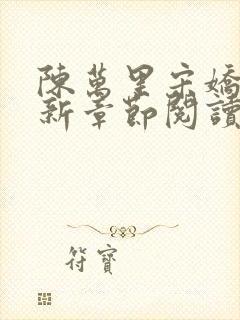 陳萬里宋嬌
新章節閱讀
符寶